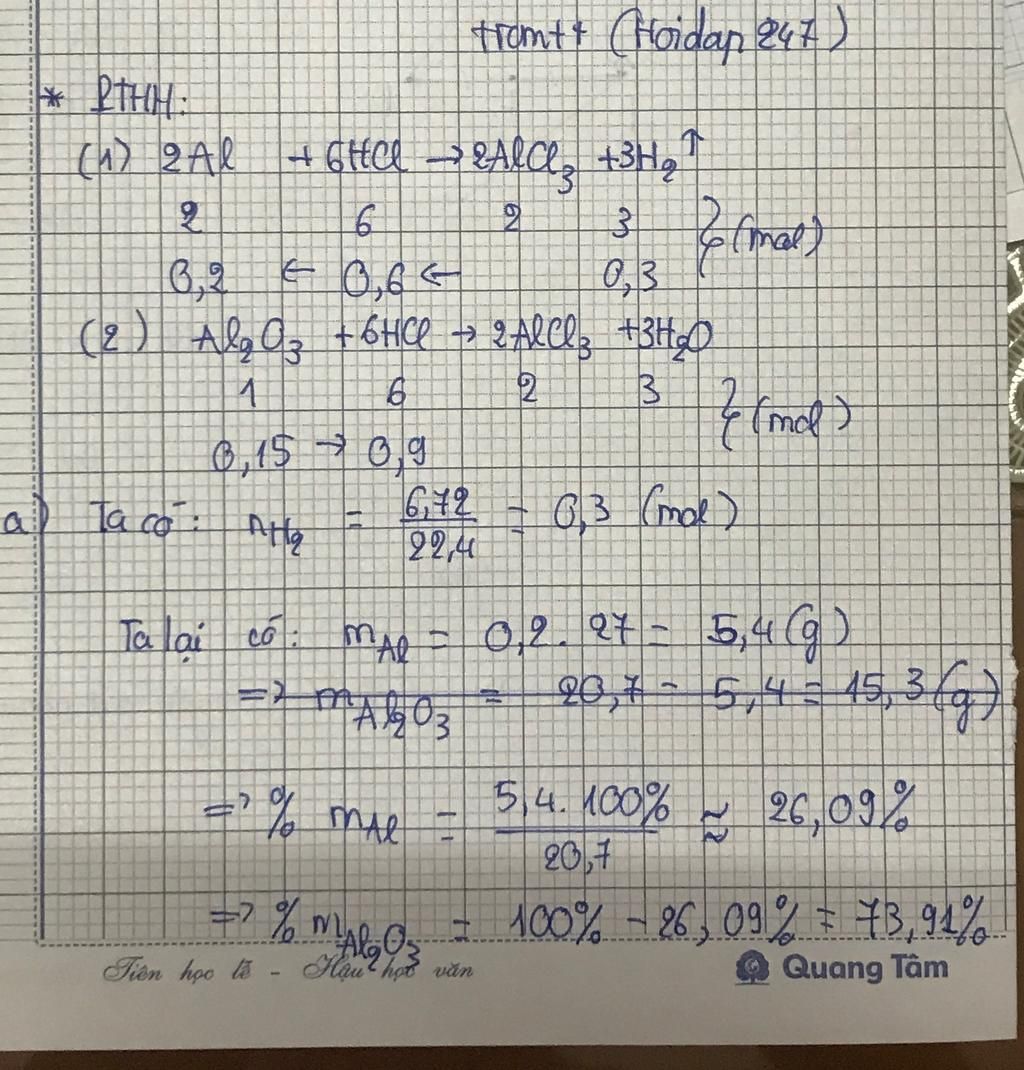 tramtt (Hoidap247)
* PTHH:
(1) 2Al + 6HCl → 2AlCl₃ + 3H₂↑
2 6 2 3 } (mol)
0,2 ← 0,6 ← 0,3
(2) Al₂O₃ + 6HCl → 2AlCl₃ + 3H₂O
1 6 2 3 } (mol)
0,15 → 0,9
a) Ta có: nH₂ = 6,72/22,4 = 0,3 (mol)
Ta lại có: mAl = 0,2 . 27 = 5,4 (g)
=> mAl₂O₃ = 20,7 - 5,4 = 15,3 (g)
=> % mAl = 5,4 . 100%/20,7 ≈ 26,09%
=> % mAl₂O₃ = 100% - 26,09% = 73,91%
Tiên học lễ - Hậu học văn
Quang Tâm